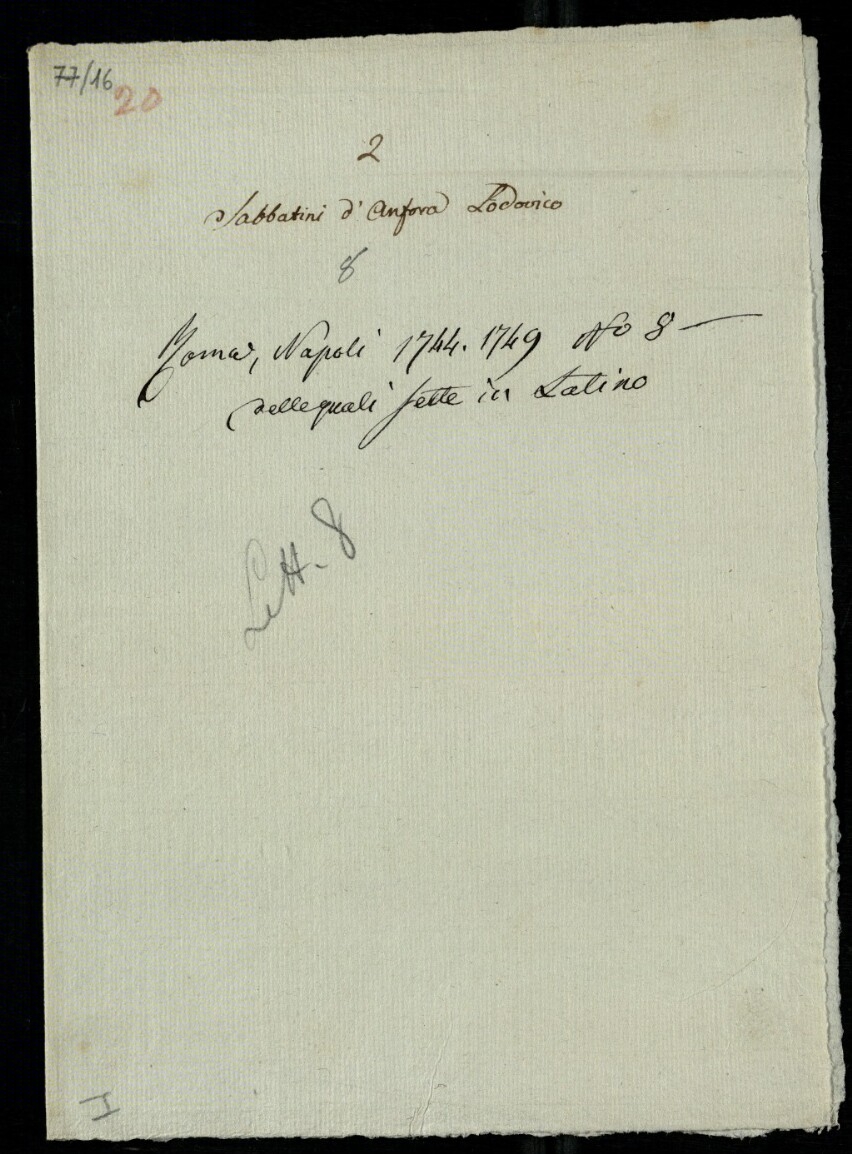 77/16
20
2
Sabbatini d'Anfora Lodovico
8
Roma, Napoli 1744. 1749 No 8 —
delle quali sette in Latino
Lett. 8
I